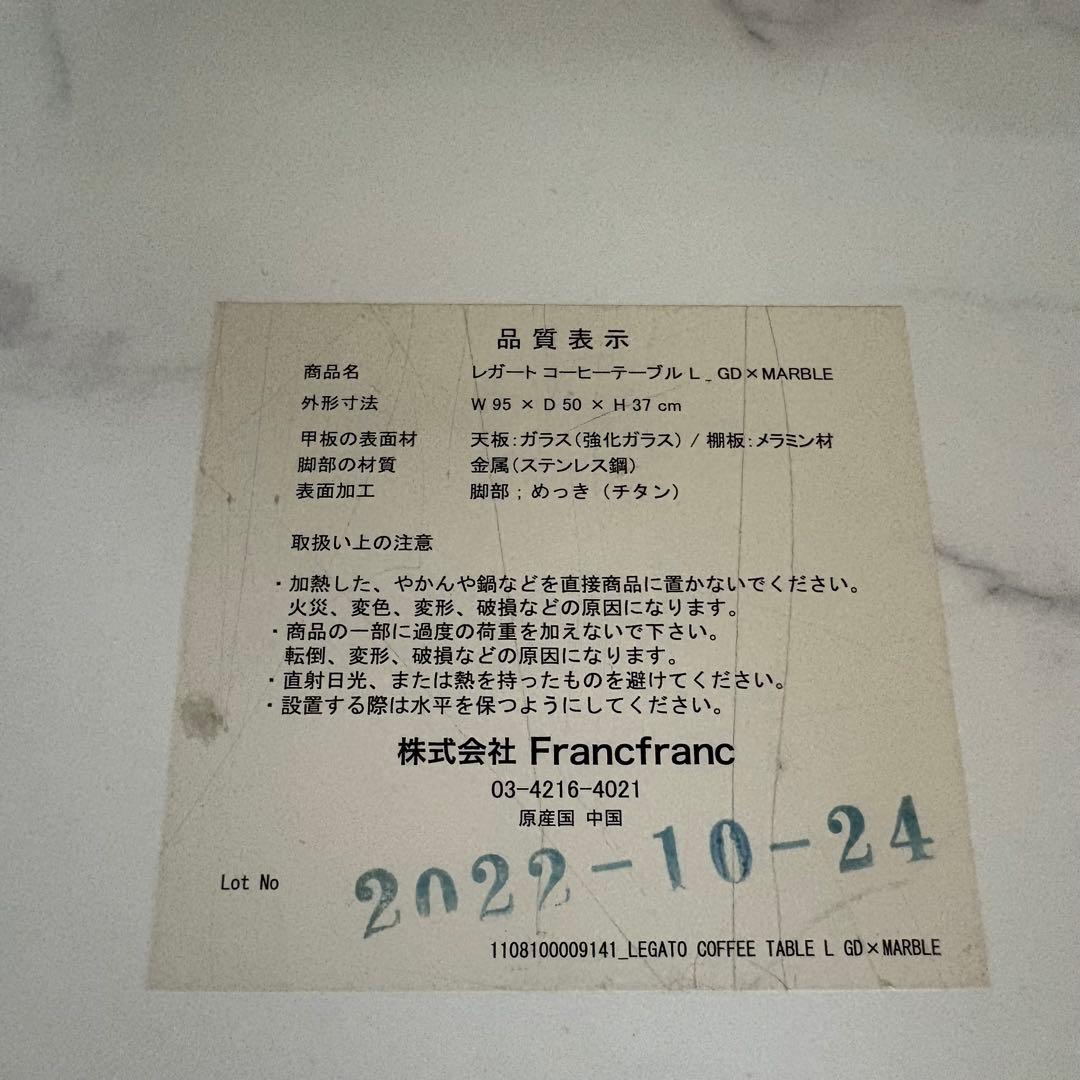 品質表示
商品名 レガート コーヒーテーブル L _ GD×MARBLE
外形寸法 W 95 × D 50 × H 37 cm
甲板の表面材 天板:ガラス(強化ガラス) / 棚板:メラミン材
脚部の材質 金属(ステンレス鋼)
表面加工 脚部;めっき(チタン)
取扱い上の注意
・加熱した、やかんや鍋などを直接商品に置かないでください。
火災、変色、変形、破損などの原因になります。
・商品の一部に過度の荷重を加えないで下さい。
転倒、変形、破損などの原因になります。
・直射日光、または熱を持ったものを避けてください。
・設置する際は水平を保つようにしてください。
株式会社 Francfranc
03-4216-4021
原産国 中国
Lot No 2022-10-24
1108100009141_LEGATO COFFEE TABLE L GD×MARBLE